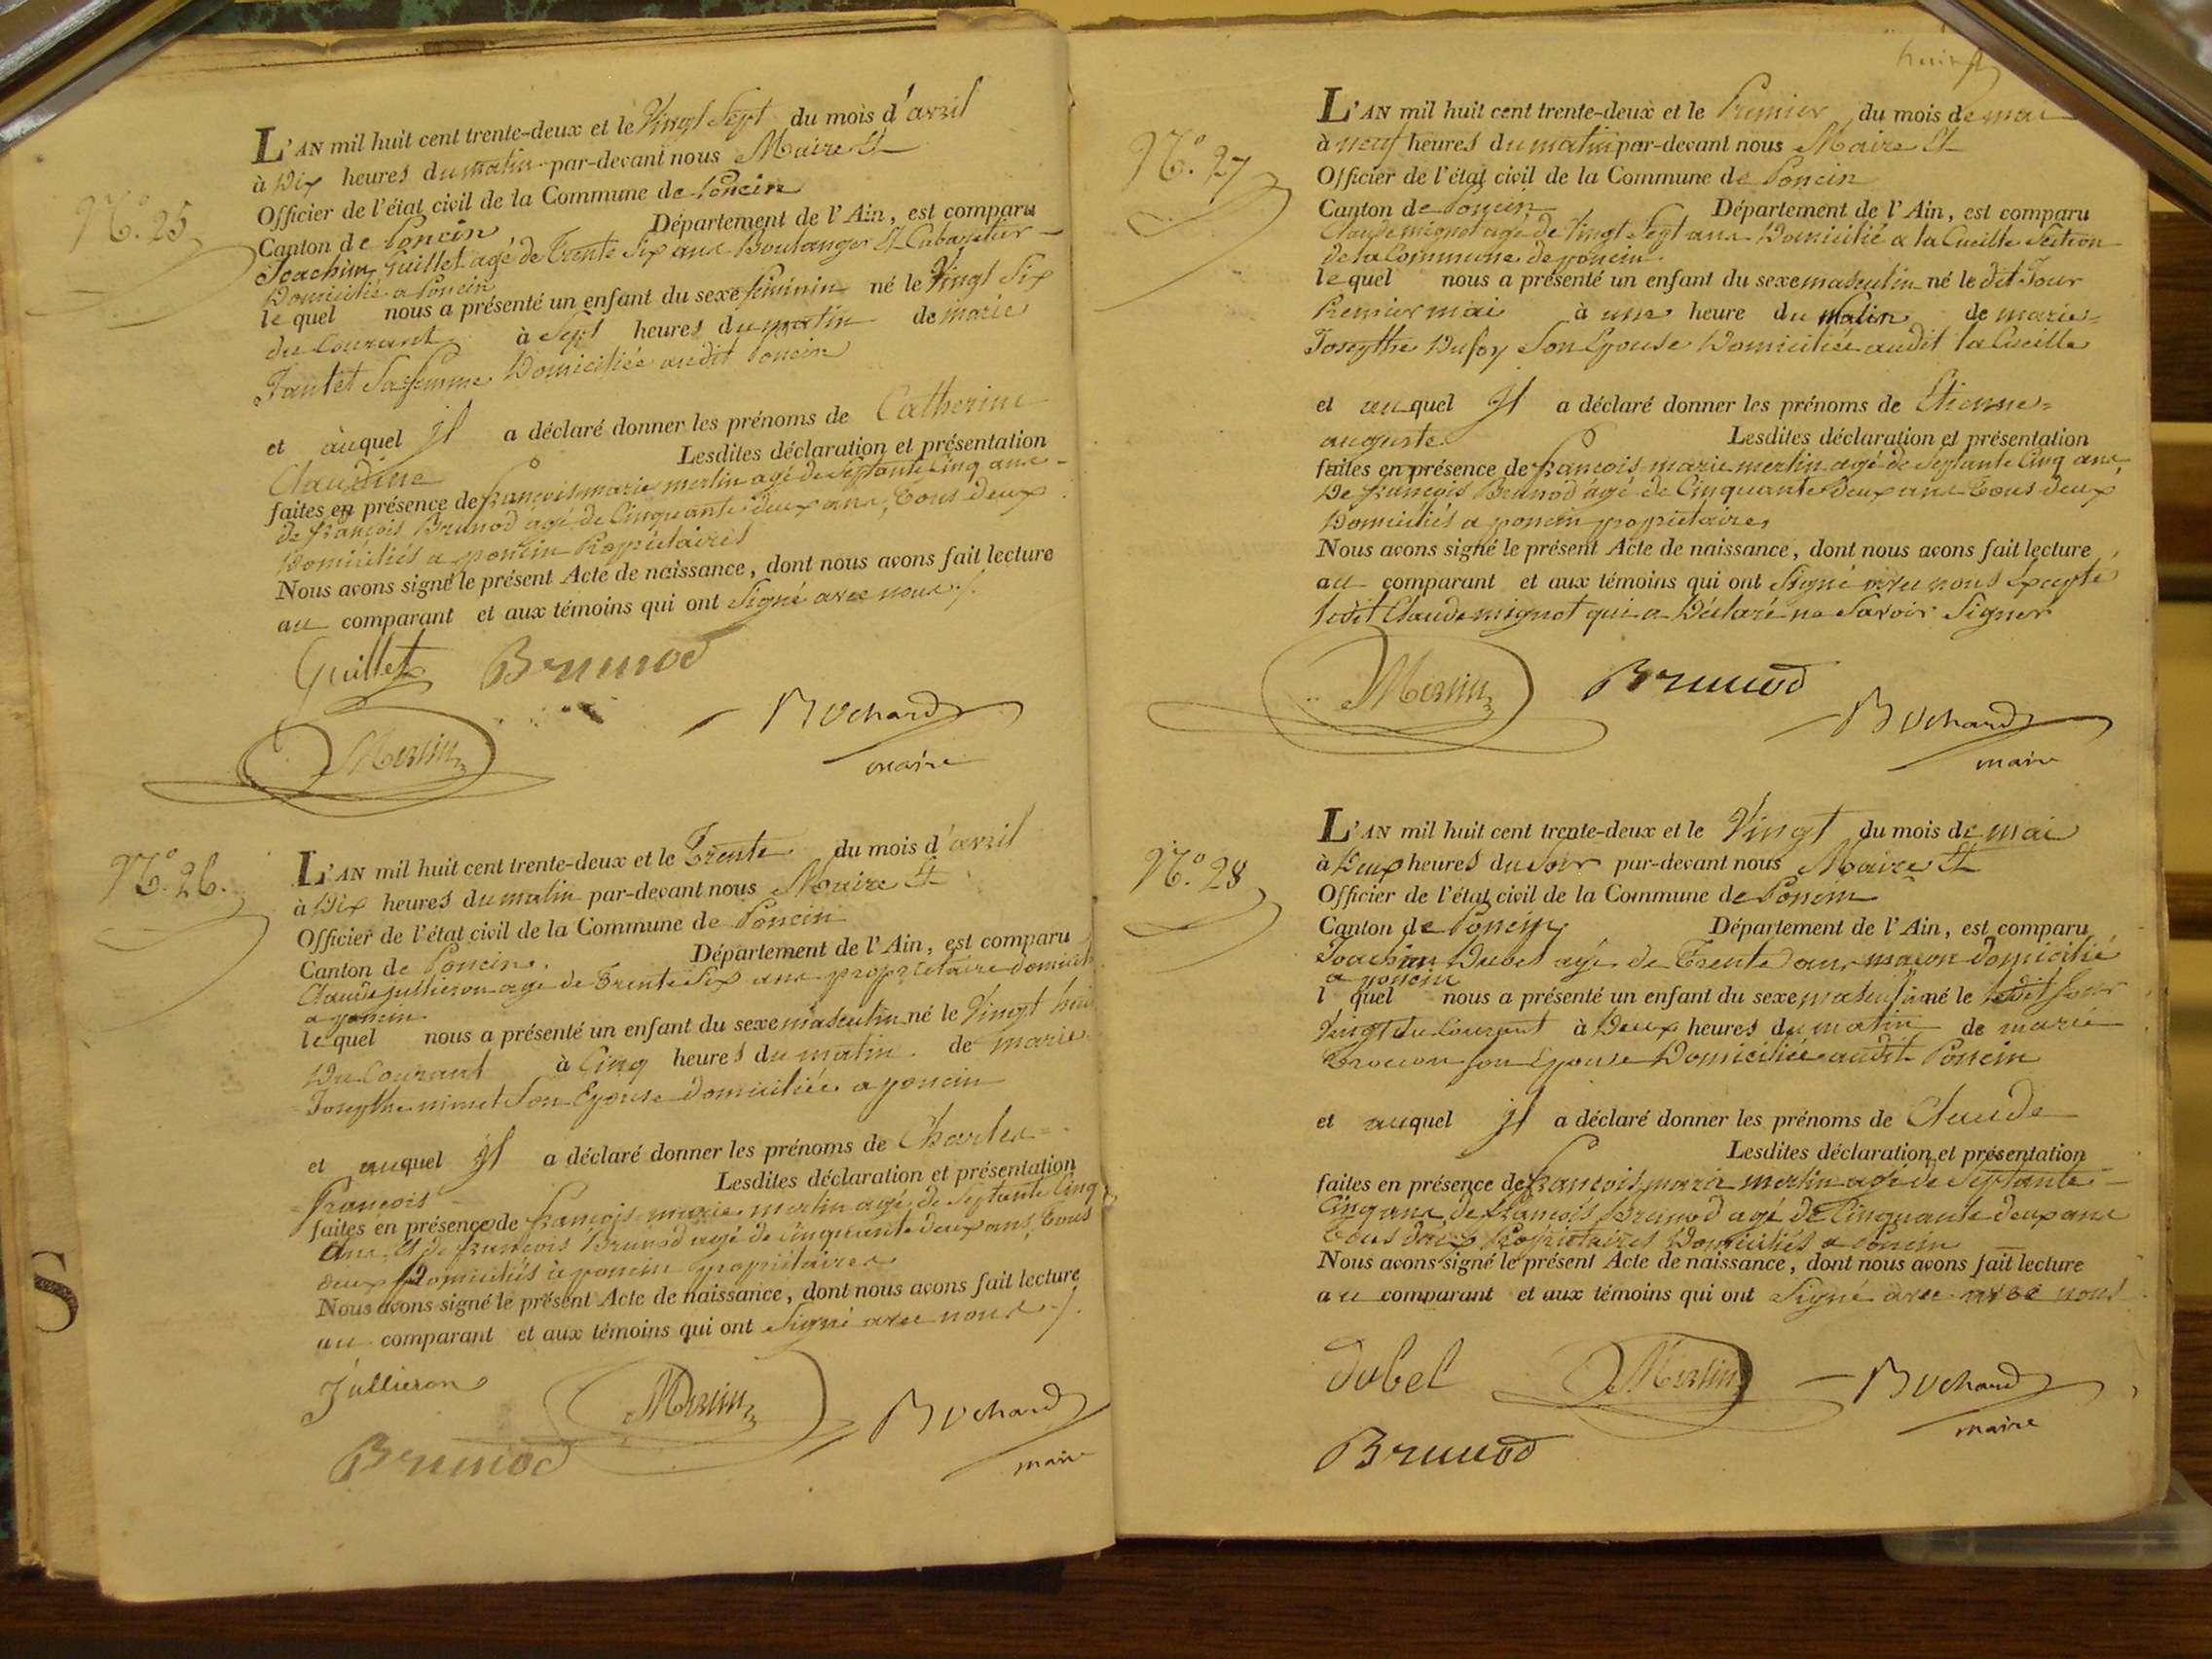 N.° 25
L'AN mil huit cent trente-deux et le Vingt Sept du mois d'avril
à Dix heures du matin par-devant nous Maire Et
Officier de l'état civil de la Commune de Poncin
Canton de Poncin Département de l'Ain, est comparu
Joachim Guillet agé de Trente Six ans Boulanger Et Cabaretier
Domicilié a Poncin
le quel nous a présenté un enfant du sexe féminin né le Vingt Six
du Courant à Sept heures du matin de marie
Tantet Sa femme Domiciliée audit Poncin
et auquel Il a déclaré donner les prénoms de Catherine
Claudine Lesdites déclaration et présentation
faites en présence de françois marie merlin agé de Septante Cinq ans
de françois Brunod agé de Cinquante deux ans, Tous deux
Domiciliés a poncin Propriétaires
Nous avons signé le présent Acte de naissance, dont nous avons fait lecture
au comparant et aux témoins qui ont Signé avec nous ./.
Guillet Brunod
Bochard
Merlin
maire
N.° 26.
L'AN mil huit cent trente-deux et le Trente du mois d'avril
à Dix heures du matin par-devant nous Maire Et
Officier de l'état civil de la Commune de Poncin
Canton de Poncin. Département de l'Ain, est comparu
Claude Jullieron age de Trente Six ans propriétaire domicilié
a poncin
le quel nous a présenté un enfant du sexe masculin né le Vingt huit
Du Courant à Cinq heures du matin de marie
Josepthe minet Son Epouse domiciliée a poncin
et auquel Il a déclaré donner les prénoms de Charles
françois Lesdites déclaration et présentation
faites en présence de françois marie merlin agé de Septante Cinq
ans Et de françois Brunod agé de Cinquante deux ans, Tous
deux Domiciliés à poncin propriétaires
Nous avons signé le présent Acte de naissance, dont nous avons fait lecture
au comparant et aux témoins qui ont Signé avec nous ./.
Jullieron
Merlin Bochard
Brunod maire
N.° 27
L'AN mil huit cent trente-deux et le Premier du mois de mai
à neuf heures du matin par-devant nous Maire Et
Officier de l'état civil de la Commune de Poncin
Canton de Poncin Département de l'Ain, est comparu
Claude mignot agé de Vingt Sept ans Domicilié a la Cueille Section
de la Commune de poncin
le quel nous a présenté un enfant du sexe masculin né le dit Jour
Premier mai à une heure du matin de marie=
Josepthe Dufoy Son Epouse Domiciliée audit la Cueille
et auquel Il a déclaré donner les prénoms de Etienne=
auguste Lesdites déclaration et présentation
faites en présence de françois marie merlin agé de Septante Cinq ans,
De françois Brunod agé de Cinquante Deux ans Tous deux
Domiciliés a poncin propriétaires
Nous avons signé le présent Acte de naissance, dont nous avons fait lecture
au comparant et aux témoins qui ont Signé avec nous Excepté
ledit Claude mignot qui a Déclaré ne Savoir Signer
Merlin Brunod
Bochard
maire
N.° 28
L'AN mil huit cent trente-deux et le Vingt du mois de mai
à Deux heures du Soir par-devant nous Maire Et
Officier de l'état civil de la Commune de Poncin
Canton de Poncin Département de l'Ain, est comparu
Joachim Dubel agé de Trente ans macon domicilié
a poncin
l quel nous a présenté un enfant du sexe masculin né le
Vingt du Courant à Deux heures du matin de marie
son Epouse Domiciliée audit Poncin
et auquel Il a déclaré donner les prénoms de Claude
Lesdites déclaration et présentation
faites en présence de françois marie merlin agé de Septante
Cinq ans, de françois Brunod agé de Cinquante deux ans
Tous deux Propriétaires Domiciliés a poncin
Nous avons signé le présent Acte de naissance, dont nous avons fait lecture
au comparant et aux témoins qui ont Signé avec avec nous
Dubel Merlin Bochard
maire
Brunod
S